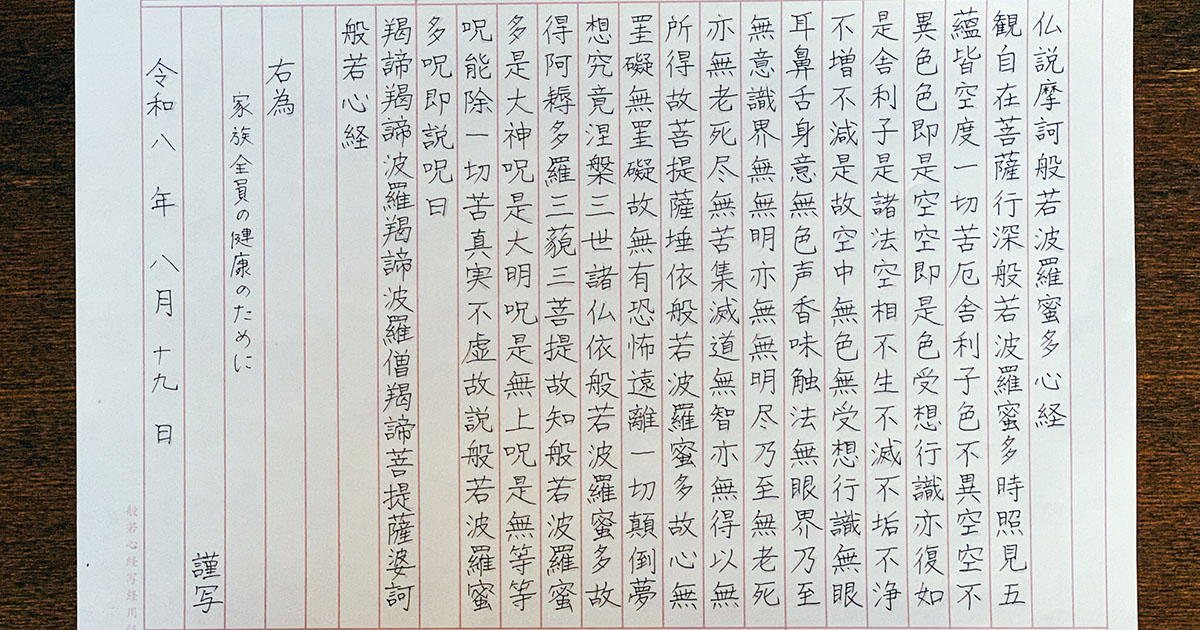 仏説摩訶般若波羅蜜多心経
観自在菩薩行深般若波羅蜜多時照見五
蘊皆空度一切苦厄舎利子色不異空空不
異色色即是空空即是色受想行識亦復如
是舎利子是諸法空相不生不滅不垢不浄
不増不減是故空中無色無受想行識無眼
耳鼻舌身意無色声香味触法無眼界乃至
無意識界無無明亦無無明尽乃至無老死
亦無老死尽無苦集滅道無智亦無得以無
所得故菩提薩埵依般若波羅蜜多故心無
罣礙無罣礙故無有恐怖遠離一切顛倒夢
想究竟涅槃三世諸仏依般若波羅蜜多故
得阿耨多羅三藐三菩提故知般若波羅蜜
多是大神呪是大明呪是無上呪是無等等
呪能除一切苦真実不虚故説般若波羅蜜
多呪即説呪曰
羯諦羯諦波羅羯諦波羅僧羯諦菩提薩婆訶
般若心経
右為
家族全員の健康のために
謹写
令和八年八月十九日
般若心経写経用